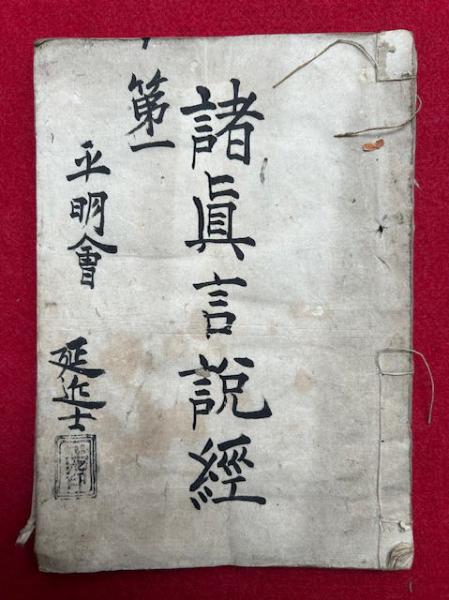 諸眞言說經
第一
平明會
延進士